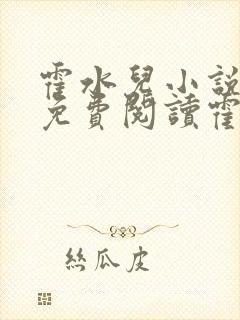 霍水兒小說
免費閱讀霍
絲瓜皮